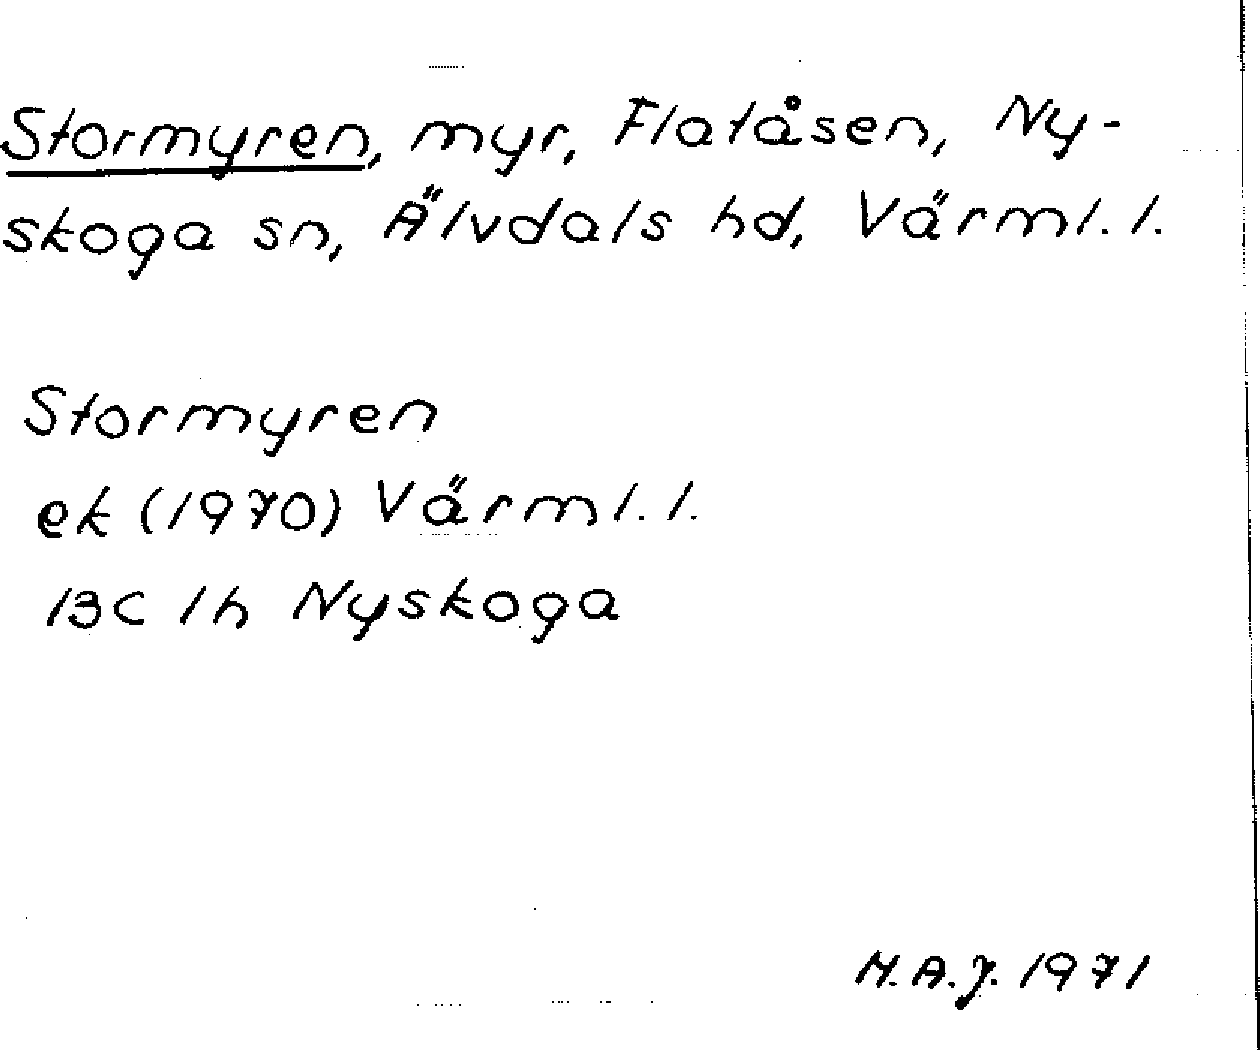 Stormyren, myr, Flatåsen, Ny-
skoga sn, Älvdals hd, Värml. l.
Stormyren
ek (1970) Värml. l.
13C 1h Nyskoga
M.A.J. 1971